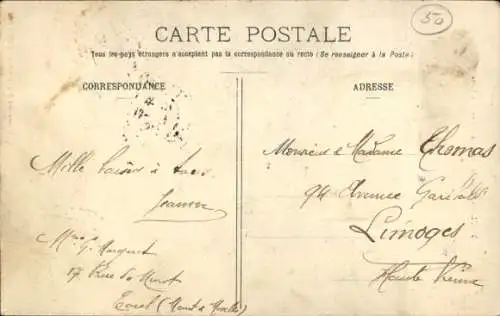 50
CARTE POSTALE
Tous les pays étrangers n'acceptent pas la correspondance au recto (Se renseigner à la Poste)
CORRESPONDANCE
ADRESSE
Mille baisers à tous
Jeanne
Mme G.
17 Rue de
Toul (Meurthe & Moselle)
Monsieur & Madame Thomas
94 Avenue Garibaldi
Limoges
Haute Vienne